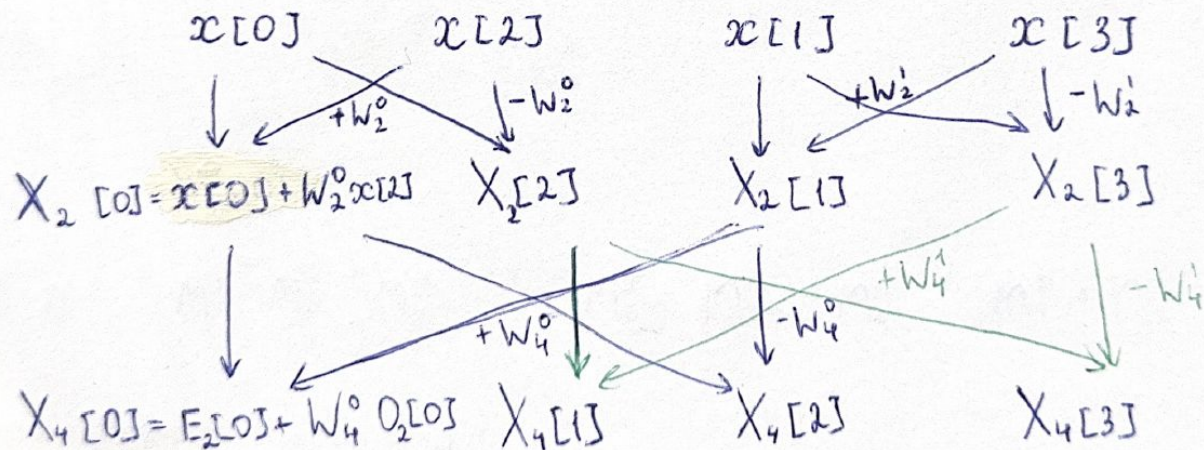 x[0] x[2] x[1] x[3]
+W₂⁰ -W₂⁰ +W₂¹ -W₂¹
X₂[0]=x[0]+W₂⁰x[2] X₂[2] X₂[1] X₂[3]
+W₄¹ -W₄¹
+W₄⁰ -W₄⁰
X₄[0]=E₂[0]+W₄⁰O₂[0] X₄[1] X₄[2] X₄[3]